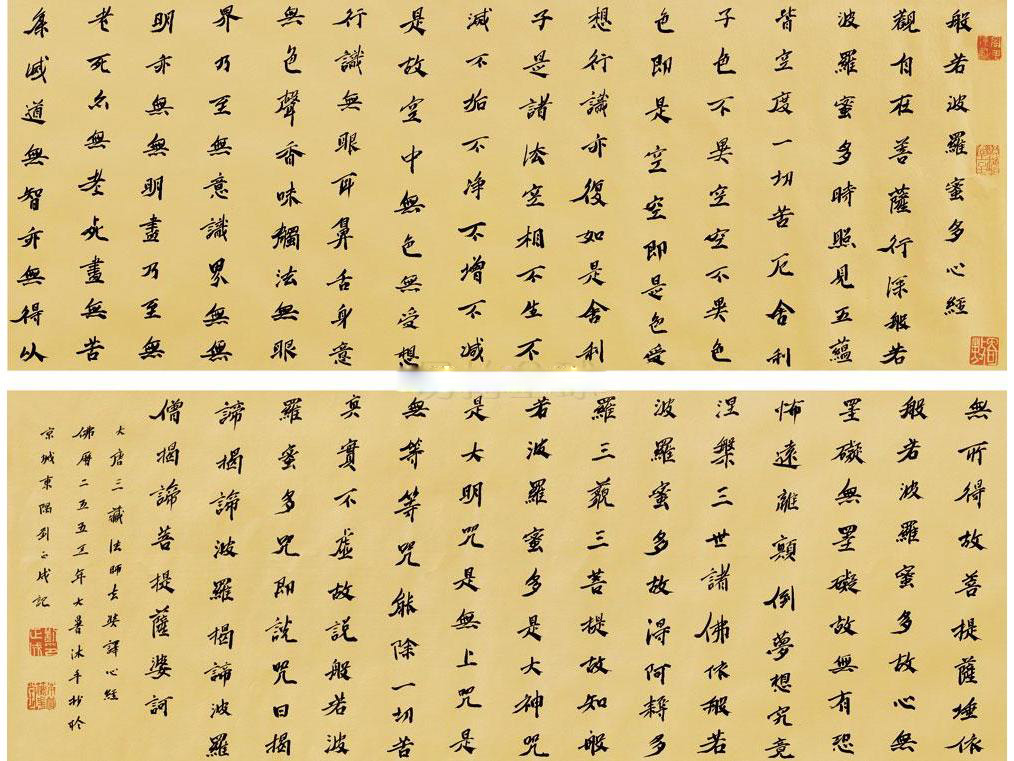 般若波羅蜜多心經
觀自在菩薩行深般若
波羅蜜多時照見五蘊
皆空度一切苦厄舍利
子色不異空空不異色
色即是空空即是色受
想行識亦復如是舍利
子是諸法空相不生不
滅不垢不净不增不減
是故空中無色無受想
行識無眼耳鼻舌身意
無色聲香味觸法無眼
界乃至無意識界無無
明亦無無明盡乃至無
老死亦無老死盡無苦
集滅道無智亦無得以
無所得故菩提薩埵依
般若波羅蜜多故心無
罣礙無罣礙故無有恐
怖遠離顛倒夢想究竟
涅槃三世諸佛依般若
波羅蜜多故得阿耨多
羅三藐三菩提故知般
若波羅蜜多是大神咒
是大明咒是無上咒是
無等等咒能除一切苦
真實不虛故說般若波
羅蜜多咒即說咒曰揭
諦揭諦波羅揭諦波羅
僧揭諦菩提薩婆訶
大唐三藏法師玄奘譯心經
佛曆二五五五年大暑沐手抄於
京城東隅劉正成記